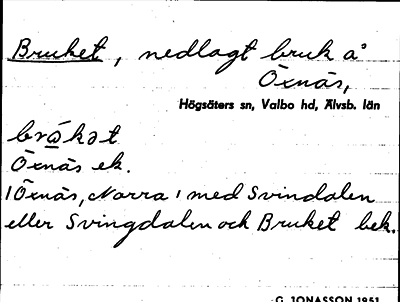 Bruket, nedlagt bruk å
Öxnäs,
Högsäters sn, Valbo hd, Älvsb. län
Öxnäs ek.
1 Öxnäs, Norra, med Svindalen
eller Svingdalen och Bruket bek.
G. JONASSON 1951